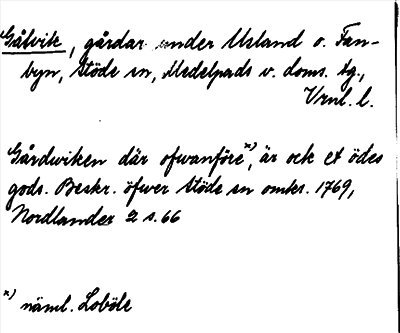 Gåtvik, gårdar under Usland o. Fan-
byn, Stöde sn, Medelpads v. doms. tg.,
Vrnl. l.
Gårdwiken där ofwanföre x), är ock et ödes
gods. Beskr. öfwer Stöde sn omkr. 1769,
Nordlander 2 s. 66
x) näml. Loböle